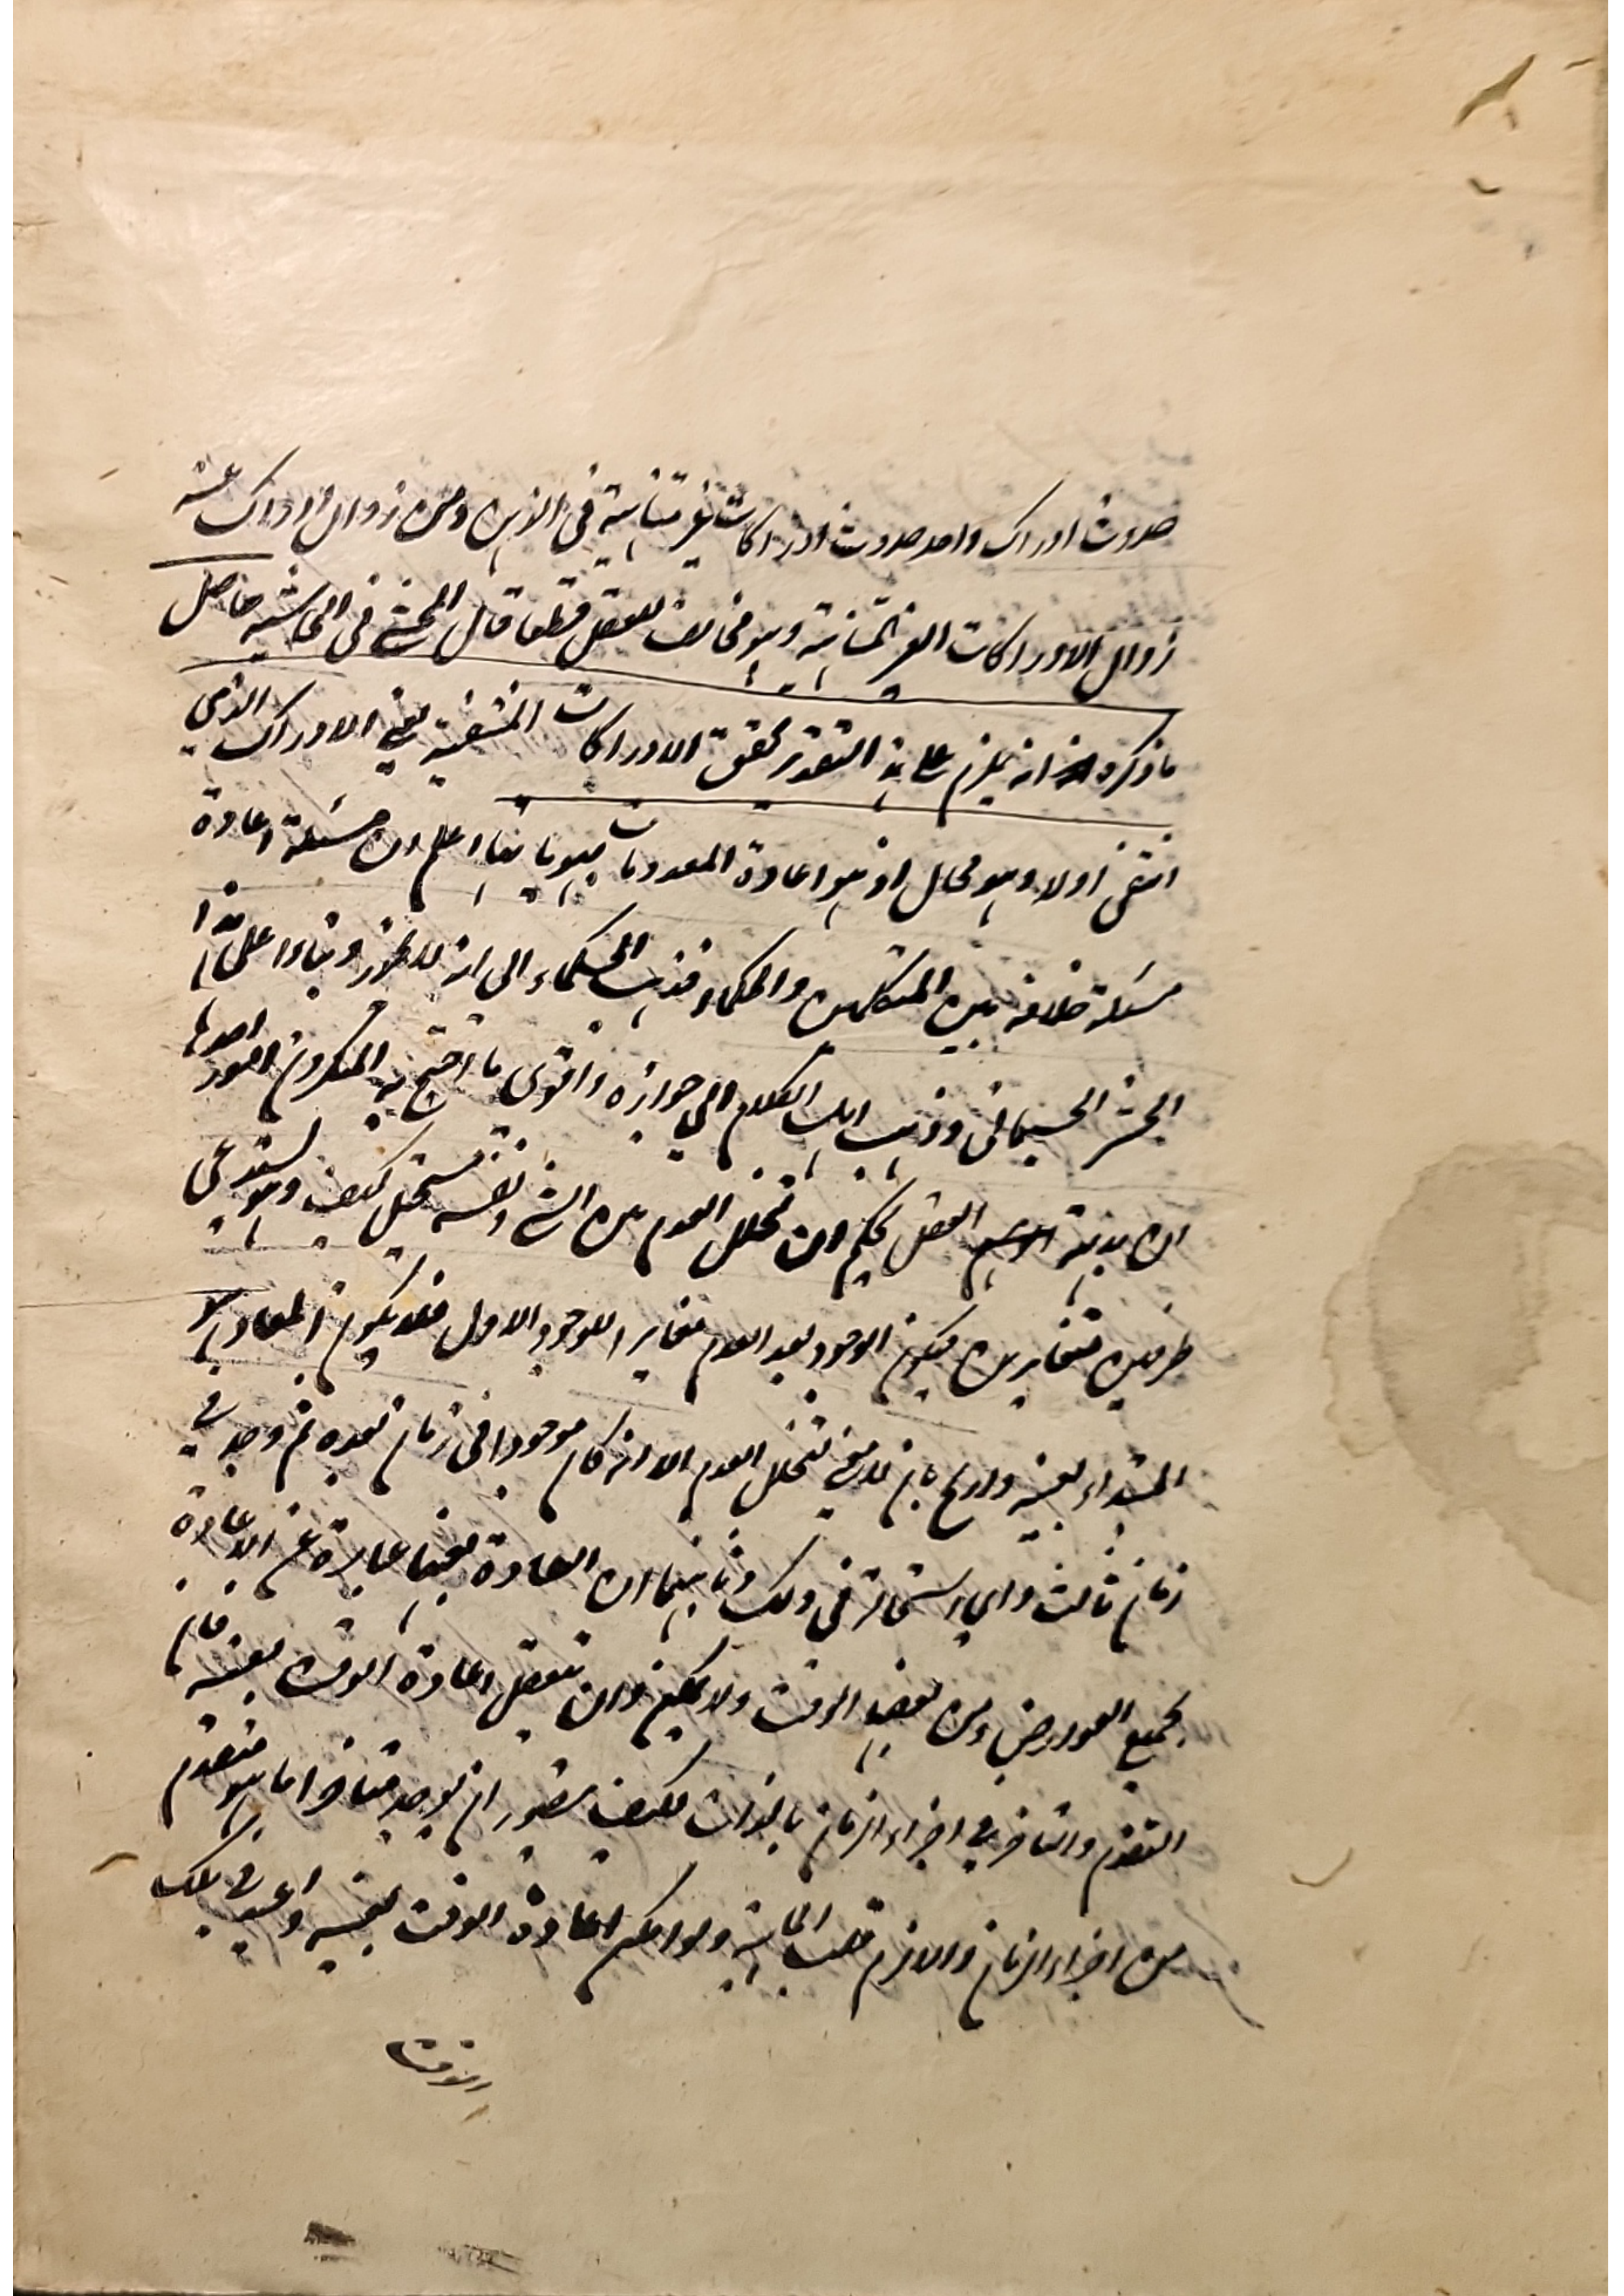 حدوث ادراك واحد حدوث ادراكات غير متناهية في الذهن ومن زوال ادراك عنه
زوال الادراكات الغير المتناهية وهو مخالف للعقل قطعا قال المحشي في الحاشية حاصل
ما ذكره انه يلزم على هذا التقدير تحقق الادراكات المنتفية يعني الادراك الذي
انتفى اولا وهو محال اذ هو اعادة المعدومات اعلم ان مسئلة اعادة
مسئلة خلافه بين المتكلمين والحكماء فذهب الحكماء الى انه لا يجوز وبناوا على هذا
الحشر الجسماني وذهب اهل الكلام الى جوازه واقوى ما احتج به المنكرون امور احدها
ان بديهة العقل يحكم وان تخلل العدم بين الشي ونفسه مستحيل كيف وهو يستدعي
طرفين متغايرين فيكون الوجود بعد العدم مغايرا للوجود الاول فلا يكون المعاد هو
المبتداء بعينه واجيب بان لا معنى لتخلل العدم الا انه كان موجودا في زمان ثم وجد في
زمان ثالث واي استحالة في ذلك وثانيهما ان اعادة بعينها عبارة عن الاعادة
بجميع العوارض ومن بعضها الوقت ولا يمكن وان تتعقل اعادة الوقت بعينه فان
التقدم والتاخر في اجزاء الزمان بالذات فكيف يتصور ان يوجد متاخرا ما هو متقدم
من اجزاء الزمان والا لزم قلب الماهية ولو امكن اعادة الوقت بعينه واعيد في ذلك
الوقت